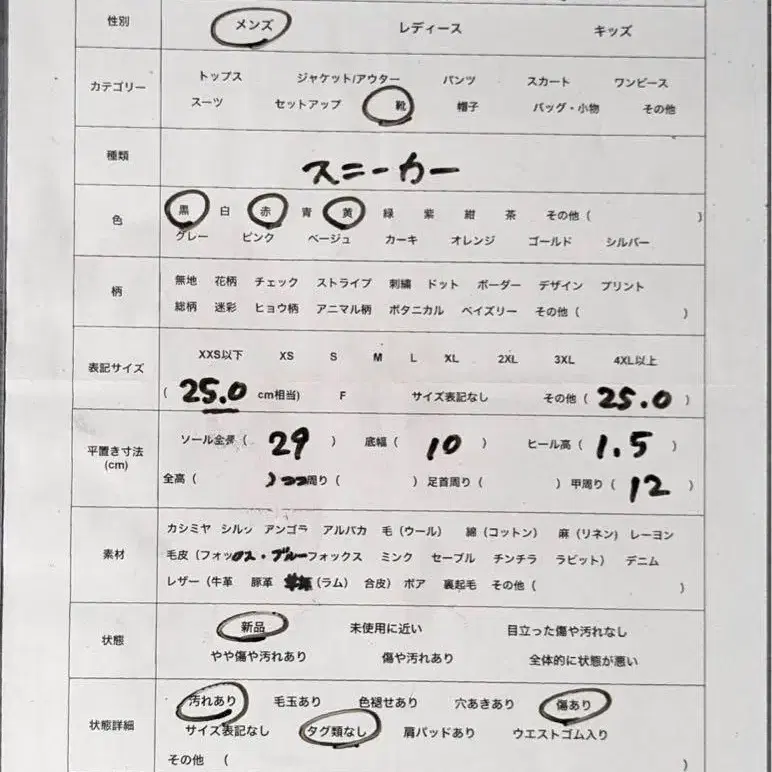 性別 メンズ レディース キッズ
カテゴリー トップス ジャケット/アウター パンツ スカート ワンピース
スーツ セットアップ 靴 帽子 バッグ・小物 その他
種類 スニーカー
色 黒 白 赤 青 黄 緑 紫 紺 茶 その他 ( )
グレー ピンク ベージュ カーキ オレンジ ゴールド シルバー
柄 無地 花柄 チェック ストライプ 刺繍 ドット ボーダー デザイン プリント
総柄 迷彩 ヒョウ柄 アニマル柄 ボタニカル ペイズリー その他 ( )
表記サイズ XXS以下 XS S M L XL 2XL 3XL 4XL以上
( 25.0 cm相当) F サイズ表記なし その他 ( 25.0 )
平置き寸法 (cm) ソール全長 ( 29 ) 底幅 ( 10 ) ヒール高 ( 1.5 )
全高 ( ) 周り ( ) 足首周り ( ) 甲周り ( 12 )
素材 カシミヤ シルク アンゴラ アルパカ 毛 (ウール) 綿 (コットン) 麻 (リネン) レーヨン
毛皮 (フォックス・ブルーフォックス ミンク セーブル チンチラ ラビット) デニム
レザー (牛革 豚革 (ラム) 合皮) ボア 裏起毛 その他 ( )
状態 新品 未使用に近い 目立った傷や汚れなし
やや傷や汚れあり 傷や汚れあり 全体的に状態が悪い
状態詳細 汚れあり 毛玉あり 色褪せあり 穴あきあり 傷あり
サイズ表記なし タグ類なし 肩パッドあり ウエストゴム入り
その他 ( )